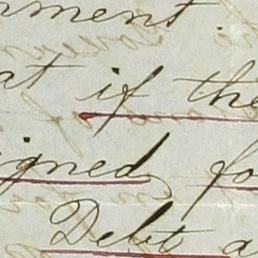 nment.
at if the
igned, fo
Debt a